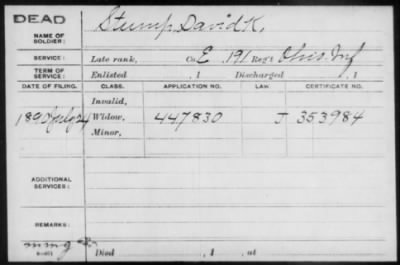 DEAD
NAME OF SOLDIER: Stump, David K.
SERVICE: Late rank, Co. E, 191 Reg't Ohio Inf
TERM OF SERVICE: Enlisted , 1 Discharged , 1
DATE OF FILING. CLASS. APPLICATION NO. LAW. CERTIFICATE NO.
Invalid,
1890 July 24 Widow, 447830 J 353984
Minor,
ADDITIONAL SERVICES:
REMARKS:
Died , 1 , at